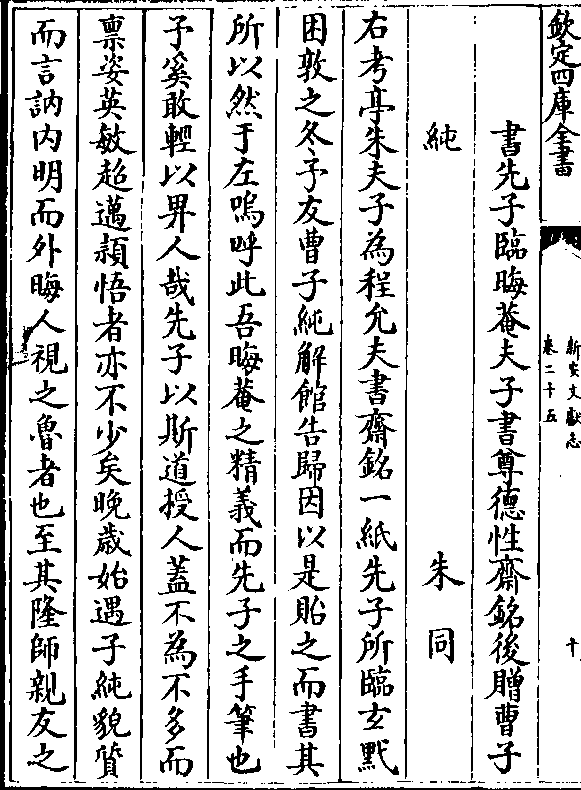 欽定四庫全書
新安文獻志
卷二十五
十
書先子臨晦菴夫子書尊德性齋銘後贈曹子
純　朱同
右考亭朱夫子為程允夫書齋銘一紙先子所臨玄黓
困敦之冬予友曹子純解館告歸因以是貽之而書其
所以然于左嗚呼此吾晦菴之精義而先子之手筆也
予奚敢輕以畀人哉先子以斯道授人蓋不為不多而
禀姿英敏超邁頴悟者亦不少矣晚歲始遇子純貌質
而言訥内明而外晦人視之魯者也至其隆師親友之